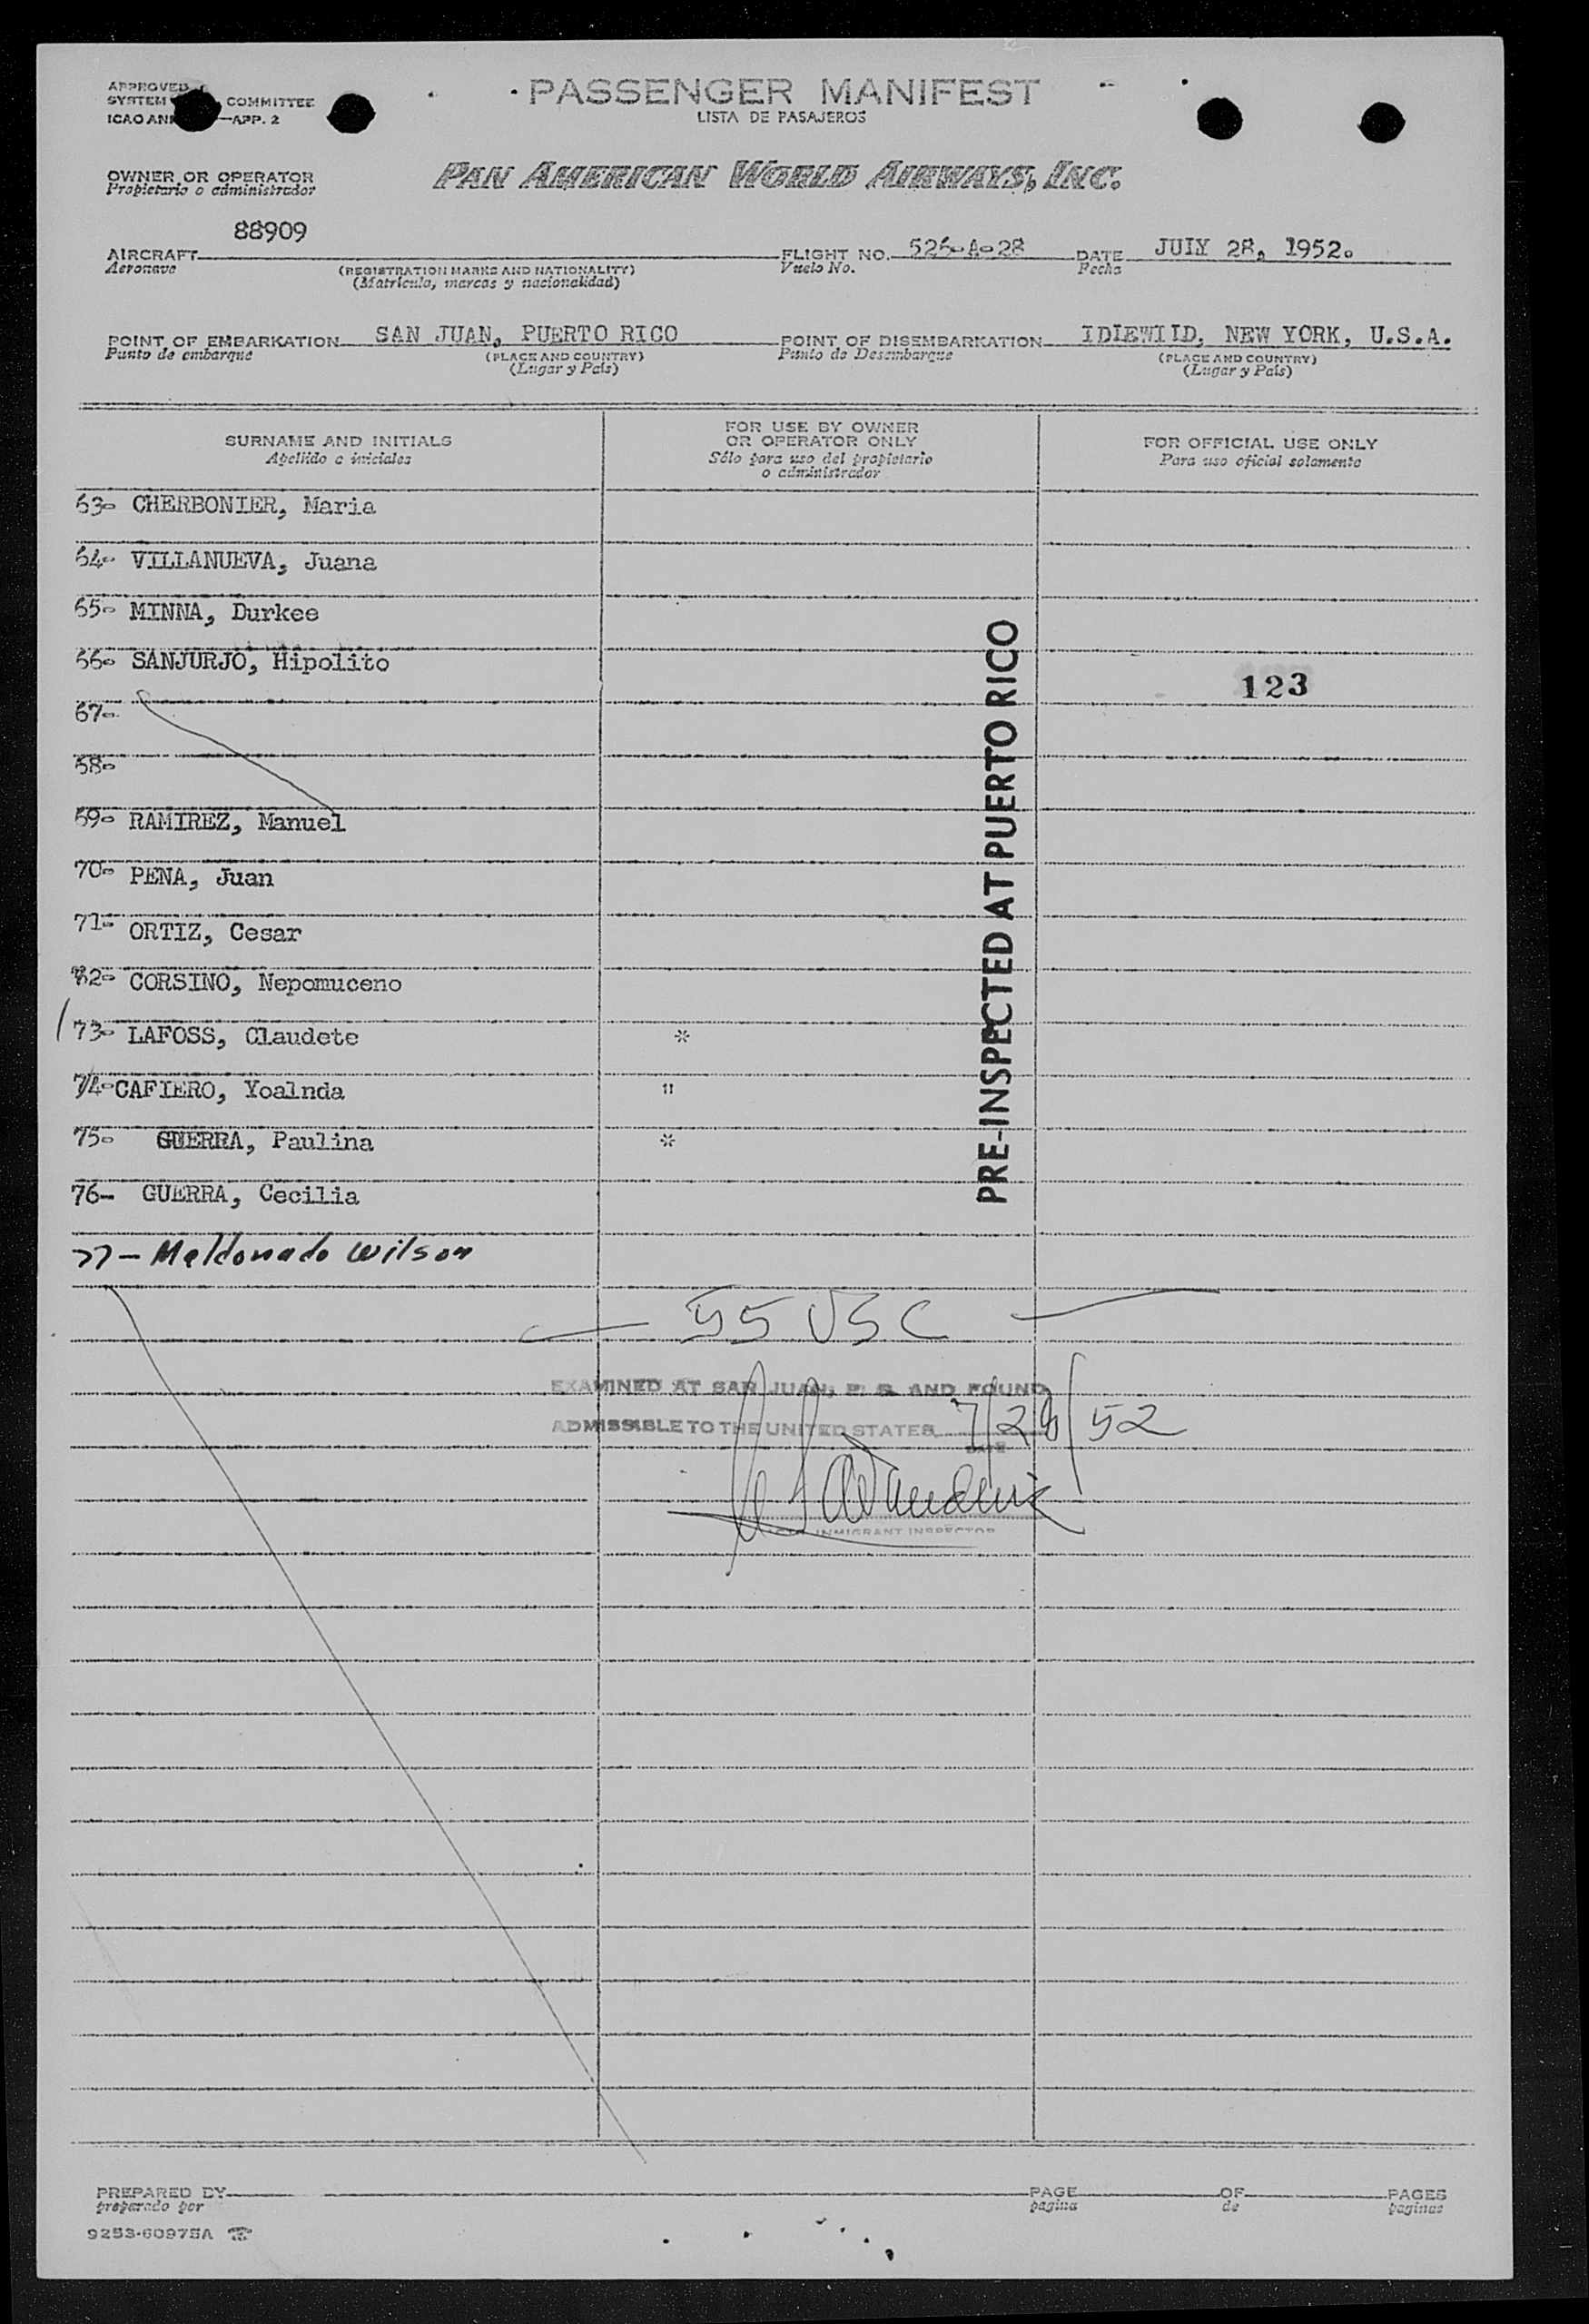 APPROVED
SYSTEM COMMITTEE
ICAO ANN —APP. 2
PASSENGER MANIFEST
LISTA DE PASAJEROS
OWNER OR OPERATOR
Propietario o administrador
PAN AMERICAN WORLD AIRWAYS, INC.
88909
AIRCRAFT FLIGHT NO. 526-A-28 DATE JULY 28, 1952.
Aeronave (REGISTRATION MARKS AND NATIONALITY) Vuelo No. Fecha
(Matrícula, marcas y nacionalidad)
POINT OF EMBARKATION SAN JUAN, PUERTO RICO POINT OF DISEMBARKATION IDLEWILD, NEW YORK, U.S.A.
Punto de embarque (PLACE AND COUNTRY) Punto de Desembarque (PLACE AND COUNTRY)
(Lugar y País) (Lugar y País)
SURNAME AND INITIALS
Apellido e iniciales
FOR USE BY OWNER
OR OPERATOR ONLY
Sólo para uso del propietario
o administrador
FOR OFFICIAL USE ONLY
Para uso oficial solamente
63- CHERBONIER, Maria
64- VILLANUEVA, Juana
65- MINNA, Durkee
66- SANJURJO, Hipolito
123
67-
68-
69- RAMIREZ, Manuel
70- PENA, Juan
71- ORTIZ, Cesar
72- CORSINO, Nepomuceno
73- LAFOSS, Claudete *
74- CAFIERO, Yoalnda "
75- GUERRA, Paulina *
76- GUERRA, Cecilia
77- Maldonado Wilson
PRE-INSPECTED AT PUERTO RICO
— 55 USC —
EXAMINED AT SAN JUAN, P. R. AND FOUND
ADMISSIBLE TO THE UNITED STATES 7/28/52
DATE
IMMIGRANT INSPECTOR
PREPARED BY PAGE OF PAGES
preparado por página de páginas
9253-60975A